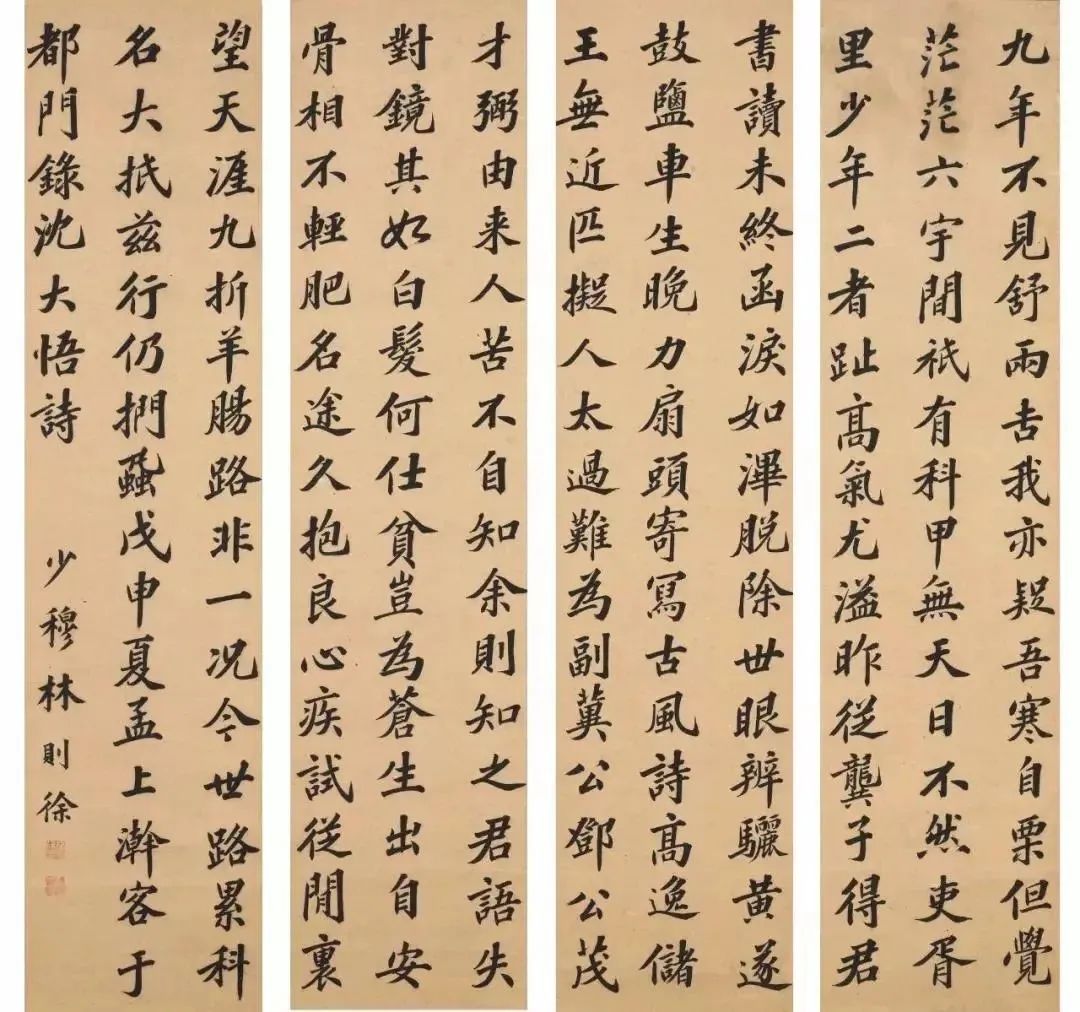 九年不見舒兩舌我亦疑吾寒自栗但覺
茫茫六宇間祇有科甲無天日不然吏胥
里少年二者趾高氣尤溢昨從龔子得君
書讀未終函淚如渾脱除世眼辨驪黄遂
鼓鹽車生晚力扇頭寄寫古風詩高逸儲
王無近匹擬人太過難為副蓂公鄧公茂
才弼由来人苦不自知余則知之君語失
對鏡其如白髮何仕貧豈為蒼生出自安
骨相不輕肥名途久抱良心疾試從閒裏
望天涯九折羊腸路非一况今世路累科
名大抵兹行仍捫蝨戊申夏孟上澣客于
都門錄沈大悟詩
少穆林則徐